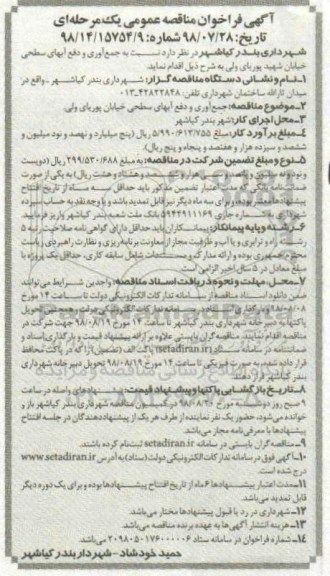 آگهی فراخوان مناقصه عمومی یک مرحله‌ای
تاریخ: ۹۸/۰۷/۲۸ شماره: ۹۸/۱۴/۱۵۷۵۴/۹
شهرداری بندر کیاشهر در نظر دارد نسبت به جمع‌آوری و دفع آبهای سطحی
خیابان شهید پوریای ولی به شرح ذیل اقدام نماید.
۱ـ نام و نشانی دستگاه مناقصه گزار: شهرداری بندر کیاشهر ـ واقع در
میدان ثارالله ساختمان شهرداری تلفن: ۴۲۸۲۲۸۴۸ـ۰۱۳
۲ـ موضوع مناقصه: جمع‌آوری و دفع آبهای سطحی خیابان پوریای ولی
۳ـ محل اجرای کار: شهر بندر کیاشهر
۴ـ مبلغ برآورد کار: مبلغ ۵/۹۹۰/۶۱۳/۷۵۵ ریال (پنج میلیارد و نهصد و نود میلیون و
ششصد و سیزده هزار و هفتصد و پنجاه و پنج ریال).
۵ـ نوع و مبلغ تضمین شرکت در مناقصه: به مبلغ ۲۹۹/۵۳۰/۶۸۸ ریال (دویست
و نود و هزار و ششصد و هشتاد و هشت ریال) به یکی از صورت
ضمانتنامه بانکی که مدت اعتبار تضمین مذکور باید حداقل سه ماه از تاریخ افتتاح
پیشنهادها معتبر بوده و برای سه ماه دیگر نیز قابل تمدید باشد و یا وجه نقد به حساب سپرده
شهرداری به شماره جاری ۵۹۴۲۹۱۱۱۶۹ بانک ملت شعبه بندر کیاشهر واریز فرمایید.
۶ـ رشته و پایه پیمانکار: پیمانکاران باید حداقل دارای گواهی نامه صلاحیت رتبه ۵
رشته راه و ترابری و یا آب و ظرفیت مجاز از معاونت برنامه‌ریزی و نظارت راهبردی ریاست
محترم جمهوری بوده و ارائه مدارک و مستندات شامل سابقه کاری، حداقل یک پروژه با
مبلغ معادل در ۵ سال اخیر الزامی است.
۷ـ محل، مهلت و نحوه دریافت اسناد مناقصه: واجدین شرایط می‌توانند
ضمن دانلود اسناد مناقصه از سامانه تدارکات الکترونیکی دولت تا ساعت ۱۴ مورخ
۹۸/۰۸/۰۸ سامانه تدارکات الکترونیکی دولت و همچنین تحویل
پاکتها به دبیرخانه شهرداری بندر کیاشهر تا ساعت ۱۴ مورخ ۹۸/۰۸/۱۹ جهت شرکت در
مناقصه اقدام نمایند. مناقصه گران بایستی علاوه بر ارائه پیشنهاد قیمت و بارگذاری اسناد و
ضمانتنامه در سامانه ستاد (setadiran.ir) پاکت الف (تضمین) را که در پاکت محافظ
قرار داده شده، به صورت فیزیکی تا ساعت ۱۴ مورخ ۹۸/۰۸/۱۹ تحویل دبیرخانه شهرداری
بندر کیاشهر گردد.
۸ـ تاریخ بازگشایی پاکتها و پیشنهاد قیمت: پیشنهادهای واصله در ساعت
۹ صبح روز به مورخ در کمیسیون مناقصه شهرداری بندر کیاشهر باز و
خوانده می‌شود، حضور یک نفر نماینده از طرف هر یک از پیشنهاددهندگان در جلسه افتتاح
پیشنهادها با معرفی‌نامه مجاز می‌باشد.
۹ـ مناقصه گران بایستی در سامانه setadiran.ir ثبت‌نام کرده باشند.
۱۰ـ آگهی فوق در سامانه تدارکات الکترونیکی دولت (ستاد) به آدرس www.setadiran.ir
درج شده است.
۱۱ـ مدت اعتبار پیشنهادها ۶ ماه از تاریخ افتتاح پیشنهادها بوده و برای یک دوره دیگر
قابل تمدید می‌باشد.
۱۲ـ شهرداری در رد یا قبول پیشنهادها مختار می‌باشد.
۱۳ـ هزینه انتشار آگهی‌ها به عهده برنده مناقصه می‌باشد.
۱۴ـ شماره فراخوان در سامانه ستاد ۲۰۹۸۰۵۰۱۷۶۰۰۰۰۰۶ می‌باشد.
حمید خودشاد ـ شهردار بندر کیاشهر